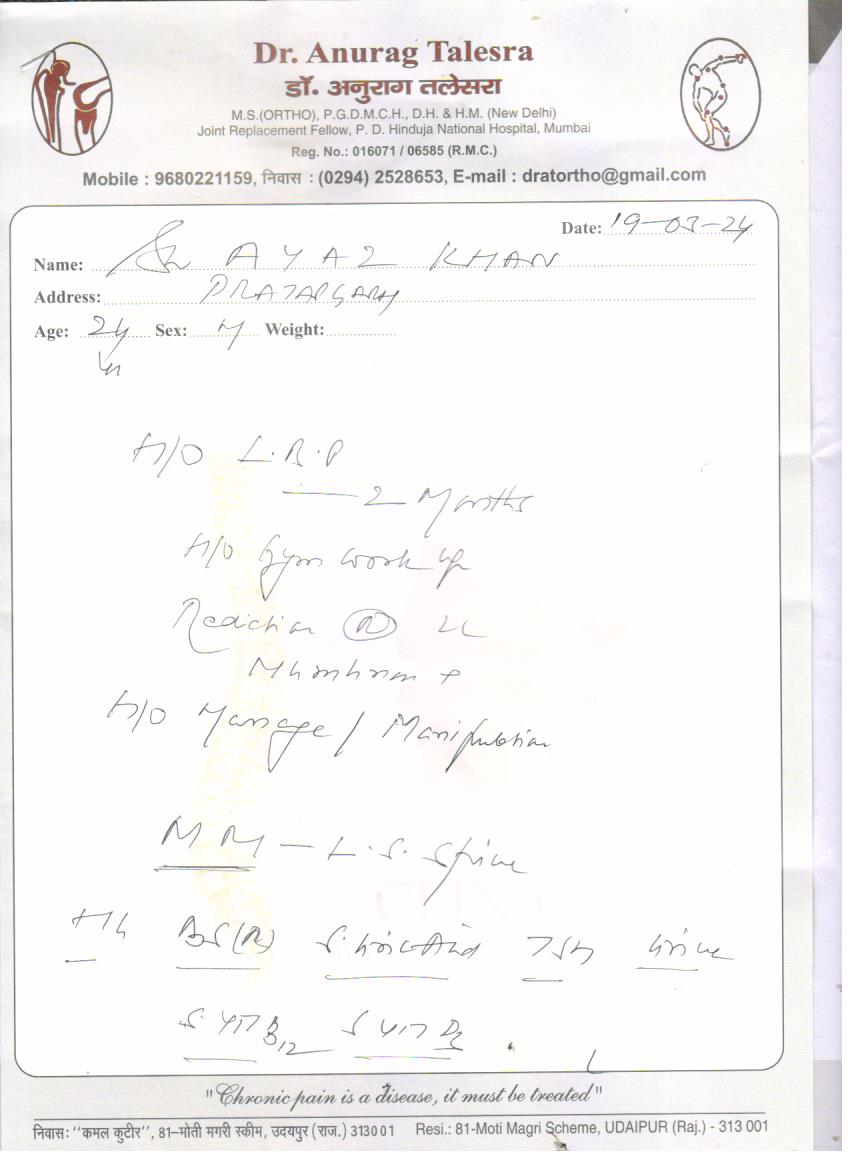 Dr. Anurag Talesra
डॉ. अनुराग तलेसरा
M.S.(ORTHO), P.G.D.M.C.H., D.H. & H.M. (New Delhi)
Joint Replacement Fellow, P. D. Hinduja National Hospital, Mumbai
Reg. No.: 016071 / 06585 (R.M.C.)
Mobile : 9680221159, निवास : (0294) 2528653, E-mail : dratortho@gmail.com
Date: 19-03-24
Name: AYAZ KHAN
Address: PRATAPGARH
Age: 24 Sex: M Weight:
H/O L.B.P
— 2 Months
H/O Gym work up
(R) LL
H/O Massage / Manipulation
— L.S. Spine
Hb TSH Urine
B12
"Chronic pain is a disease, it must be treated"
निवास: "कमल कुटीर", 81–मोती मगरी स्कीम, उदयपुर (राज.) 313001 Resi.: 81-Moti Magri Scheme, UDAIPUR (Raj.) - 313 001